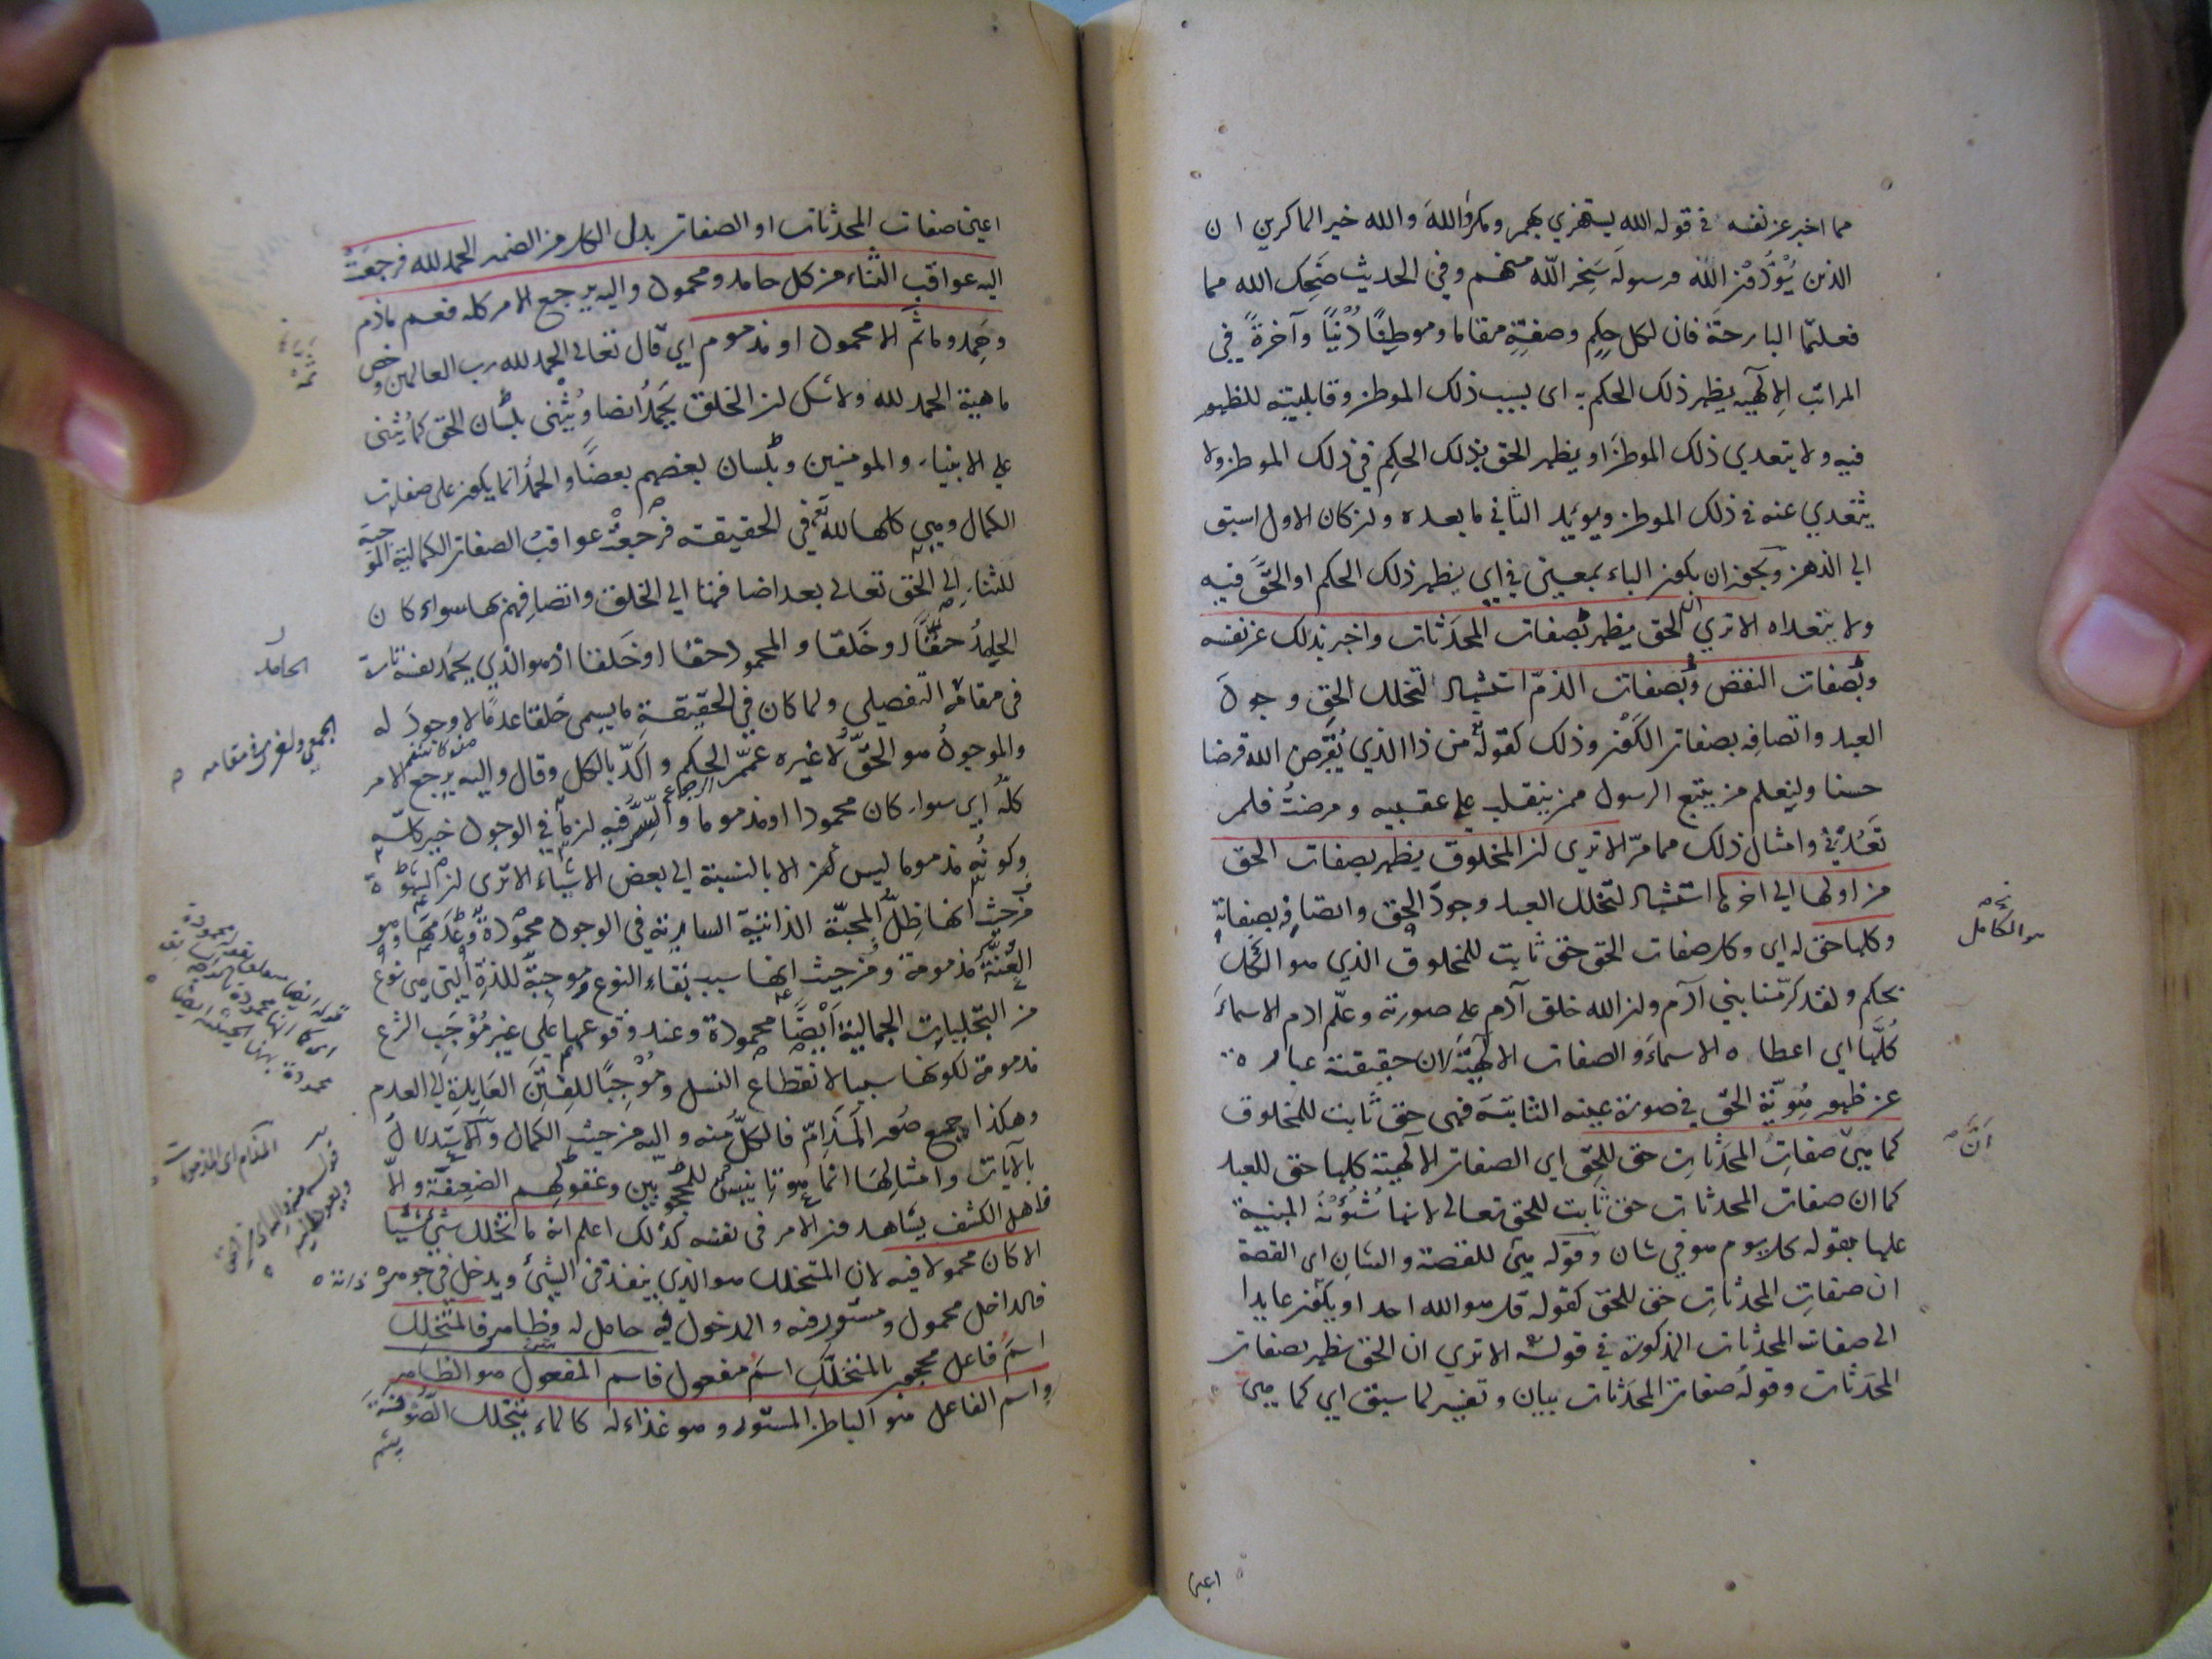 مما اخبر عن نفسه في قوله الله يستهزي بهم ومكروا الله والله خير الماكرين ان
الذين يؤذون الله ورسوله سخر الله منهم وفي الحديث ضحك الله مما
فعلتما البارحة فان لكل حكم وصفة مقاما وموطنا دنيا وآخرة في
المراتب الالهية يظهر ذلك الحكم به اى بسبب ذلك الموطن وقابليته للظهور
فيه ولا يتعدي ذلك الموطن او يظهر الحق بذلك الحكم في ذلك الموطن ولا
يتعدي عنه في ذلك الموطن ويؤيد الثاني ما بعده وان كان الاول اسبق
الي الذهن ويجوز ان يكون الباء بمعين في اي يظهر ذلك الحكم او الحق فيه
ولا يتعداه الا تري ان الحق يظهر بصفات المحدثات واخبر بذلك عن نفسه
وبصفات النقص وبصفات الذم استشهاد لتخلل الحق وجود
العبد واتصافه بصفات الكون وذلك كقوله من ذا الذي يقرض الله قرضا
حسنا ولنعلم من يتبع الرسول ممن ينقلب علي عقبيه ومرضت فلم
تعدني وامثال ذلك مما مرّ الا ترى ان المخلوق يظهر بصفات الحق
من اولها الي اخرها استشهاد لتخلل العبد وجود الحق واتصافه بصفاته
وكلها حق له اي وكل صفات الحق حق ثابت للمخلوق الذي هو الكامل
بحكم ولقد كرّمنا بني آدم وان الله خلق آدم على صورته وعلّم ادم الاسماء
كلها اي اعطاه الاسماء والصفات الالهية لان حقيقته عبارة
عن ظهور هوية الحق في صورة عينه الثابتة فهي حق ثابت للمخلوق
كما هي صفات المحدثات حق للحق اي الصفات الالهية كلها حق للعبد
كما ان صفات المحدثات حق ثابت للحق تعالى لانها شؤونه المبنية
عليها بقوله كل يوم هو في شان وقوله هي للقصة والشان اي القصة
ان صفات المحدثات حق للحق كقوله قل هو الله احد او يكون عايدا
الى صفات المحدثات المذكورة في قوله الا تري ان الحق يظهر بصفات
المحدثات وقوله صفات المحدثات بيان وتفسير لما سبق اي كما هي
هو الكامل
اعني
اعني صفات المحدثات او الصفات بدل الكل من الضمير الحمد لله فرجعت
اليه عواقب الثناء من كل حامد ومحمود واليه يرجع الامر كله فعم ما ذم
وحمد وما ثم الا محمود او مذموم اي قال تعالى الحمد لله رب العالمين وخص
ماهية الحمد لله ولا شك ان الخلق يحمد ايضا ويثني بلسان الحق كما يثنى
علي الانبياء والمومنين وبلسان بعضهم بعضا والحمد انما يكون على صفات
الكمال وهي كلها لله في الحقيقة فرجعت عواقب الصفات الكمالية الموجبة
للثناء الي الحق تعالى بعد اضافتها الي الخلق واتصافهم بها سواء كان
الحامد حقا او خلقا والمحمود حقا او خلقا اذ هو الذي يحمد نفسه تارة
في مقامه التفصيلي ولما كان في الحقيقة ما يسمى خلقا عدما لا وجود له
والموجود هو الحق لا غيره عمّم الحكم واكّد بالكل وقال واليه يرجع الامر
كله اي سواء كان محمودا او مذموما والسر فيه ان ما في الوجود خير كله
وكونه مذموما ليس الا بالنسبة الي بعض الاشياء الا ترى ان الشهوة
من حيث انها ظل المحبة الذاتية السارية في الوجود محمودة وعدمها وهو
العنة مذمومة ومن حيث انها سبب بقاء النوع وموجبة للذة التي هي نوع
من التجليات الجمالية ايضا محمودة وعند وقوعها علي غير موجب الشرع
مذمومة لكونها سببا لانقطاع النسل وموجبا للفتن العايدة الى العدم
وهكذا جميع صور المذام فالكل منه واليه من حيث الكمال والاستدلال
بالآيات وامثالها انما هو تانيس للمحجوبين وعقولهم الضعيفة والا
فاهل الكشف يشاهدون الامر في نفسه كذلك اعلم انه ما تخلل شيء شيئا
الا كان محمولا فيه لان المتخلل هو الذي ينفذ في الشيء ويدخل في جوهره ذاته
فالداخل محمول ومستور فيه والمدخول فيه حامل له وظاهر فالمتخلل
اسم فاعل محجوب بالمتخلل اسم مفعول فاسم المفعول هو الظاهر
واسم الفاعل هو الباطن المستور وهو غذاء له كالماء يتخلل الصوفة
الحامد